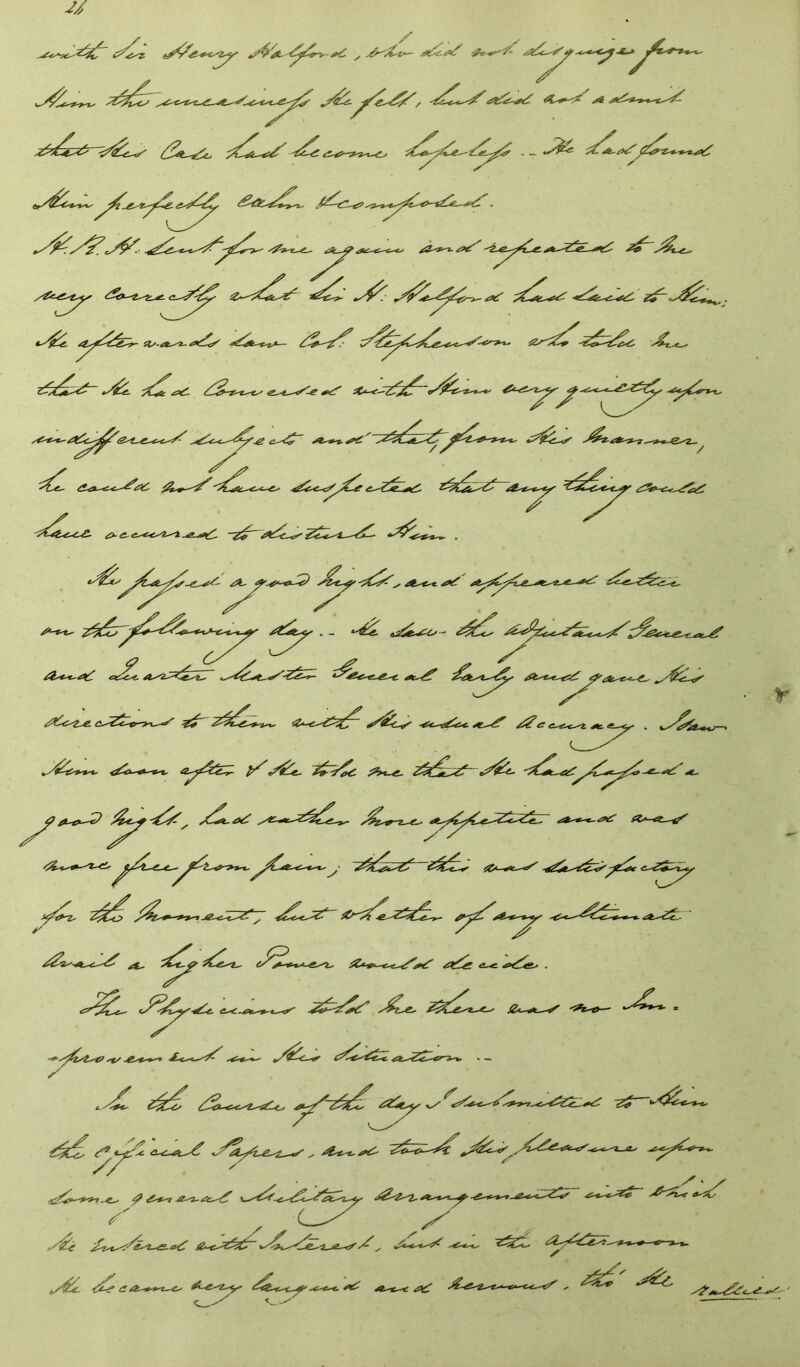 26
with Sir Henry Halford, who did not disguise from
Him the uneasiness He felt, but did not admit
that His Case had become hopeless -- He had found
Him perfectly calm & composed.
H.R.H. sent for me again and repeated to Me
very Correctly what Sir H: Halford had said to Him;
He afterwards saw Col: Stephenson who told me
that He had Conversed with Him very quietly upon
indifferent subjects and that, from His Manner,
he could not have suspected that any thing Could
have occurred to disturb Him.
He passed a good Night, and appeared better
on the following day. - He saw the Adjutant General
and Quarter Master General Early and gave His
directions to them with His usual Accuracy. I saw
Him soon after & He told me that He had passed a
good Night, had rather More appetite and was
more free from pain; that this was satisfactory
for the Moment, but whether of any ultimate
Avail a higher Power would decide.
The Physicians told Me there was no Im-
-provement in His Situation. -
In the Course of the day I submitted to Him
the Official Papers, and took His pleasure upon
some general Military Arrangements into which
He Entered with Interest, but in the Afternoon
He became very languid and Nervous, tho' He rallied